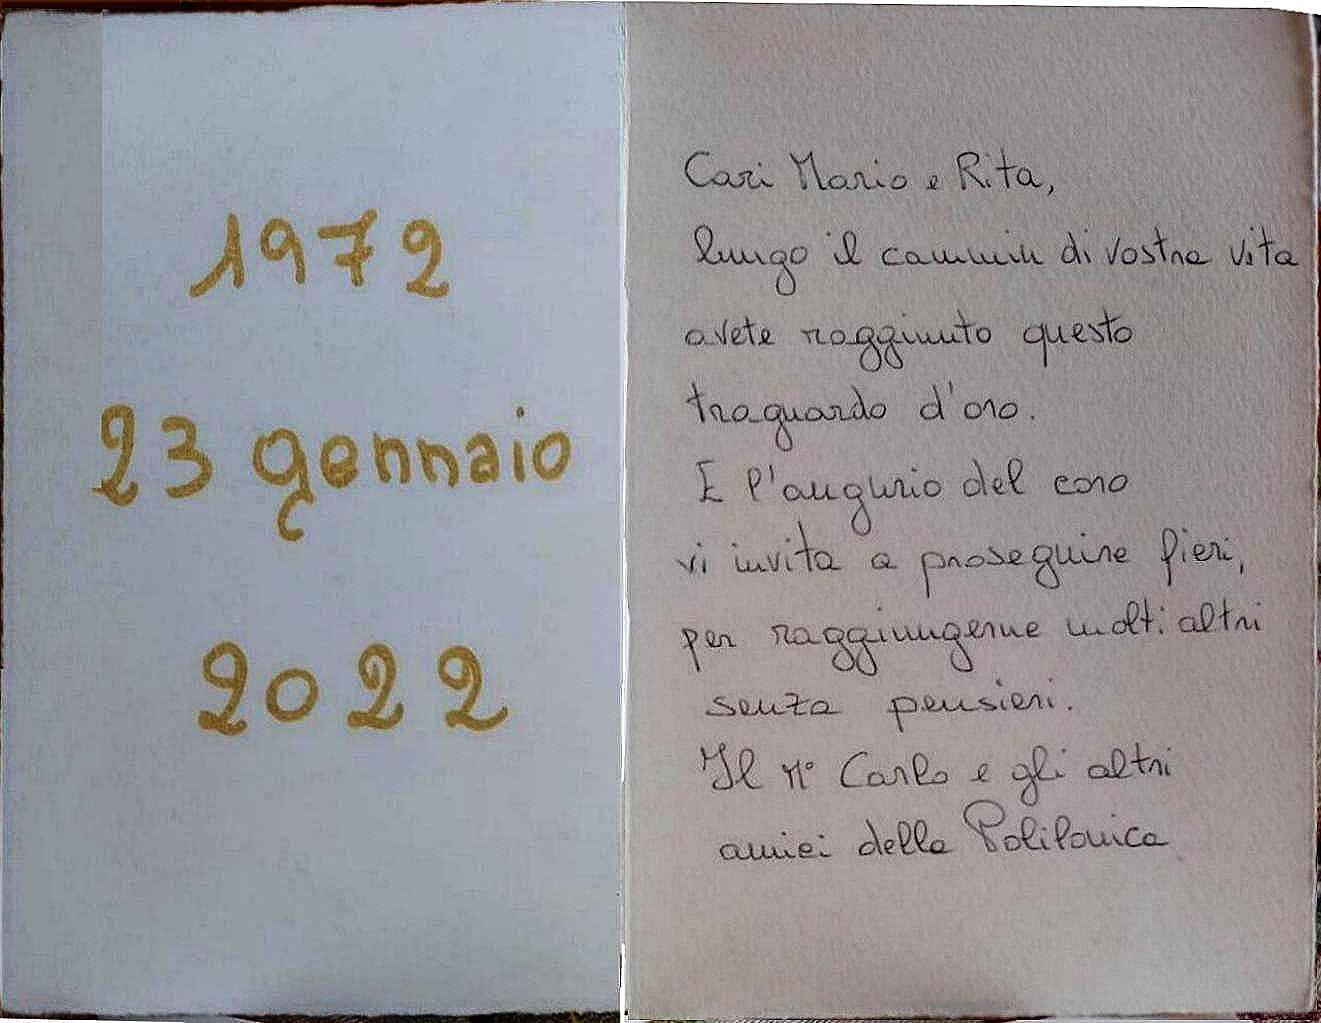 1972
23 gennaio
2022
Cari Mario e Rita,
lungo il cammin di vostra vita
avete raggiunto questo
traguardo d'oro.
E l'augurio del coro
vi invita a proseguire fieri,
per raggiungerne molti altri
senza pensieri.
Il M° Carlo e gli altri
amici della Polifonica